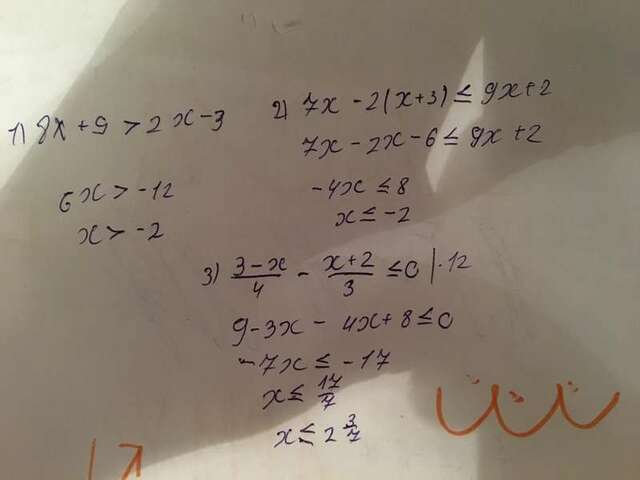 1) 8x + 9 > 2x - 3
6x > -12
x > -2
2) 7x - 2(x+3) ≤ 9x+2
7x - 2x - 6 ≤ 9x + 2
-4x ≤ 8
x ≤ -2
3) 3-x/4 - x+2/3 ≤ 0 | ·12
9 - 3x - 4x + 8 ≤ 0
-7x ≤ -17
x ≤ 17/7
x ≤ 2 3/7